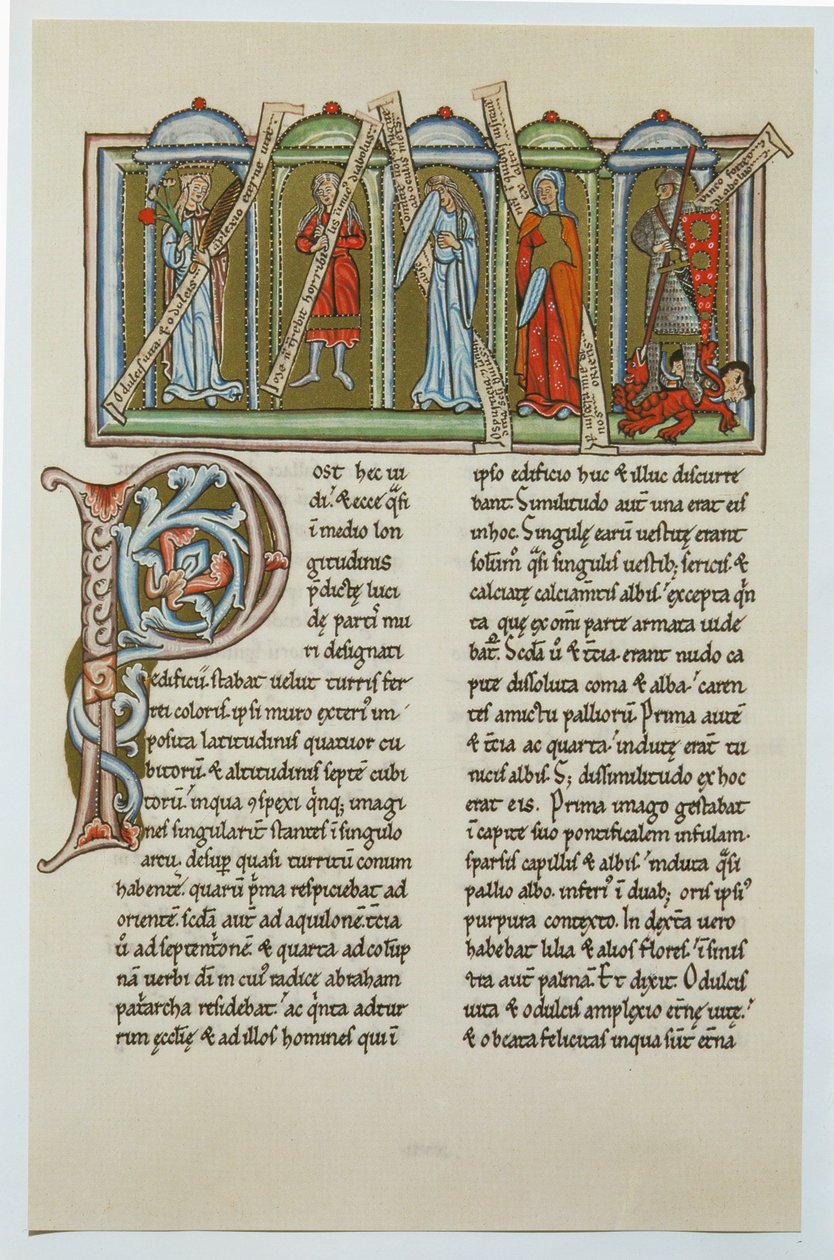 O dulcis uita & o dulcis
āplexio eterne uite
horribi
lis diabolus
diabolus
Post hec ui
di. & ecce q̄si
ī medio lon
gitudinis
p̄dictę luci
dę partis mu
ri designati
edificii. stabat uelut turris fer
rei coloris. ipsi muro exteri᾽ im
posita latitudinis quatuor cu
bitorū. & altitudinis septē cubi
torū. in qua ꝯspexi q̇nq; imagi
nes singulariṫ stantes ī singulo
arcu. desup̄ quasi turritū conum
habente. quarū p̄ma respiciebat ad
orientē. scd̄a aut̄ ad aquilonē. t̄cia
u̇ ad septent̄onē. & quarta ad colūp
nā uerbi dī in cui᾽ radice abraham
pat̄archa residebat. ac q̇nta ad tur
rim ęcclīę & ad illos homines qui ī
ipso edificio huc & illuc discurre
bant. Similitudo aut̄ una erat eis
in hoc. Singulę earū uestitę erant
solum᾽ q̄si singulis uestib; sericis. &
calciatę calciam̄tis albis. excepta q̇n
ta quę ex om̄i parte armata uide
bat᾽. Scd̄a u̇ & t̄cia. erant nudo ca
pite dissoluta coma & alba. caren
tes amictu palliorū. Prima autē
& t̄cia ac quarta. indutę erāt tu
nicis albis. S; dissimilitudo ex hoc
erat eis. Prima imago gestabat
ī capite suo pontificalem infulam.
sparsis capillis & albis. induta q̄si
pallio albo. inferi᾽ ī duab; oris ipsi᾽
purpura contexto. In dext̄a uero
habebat lilia & alios flores. ī sinis
tra aut̄ palmā. Et dixit. O dulcis
uita & o dulcis amplexio et̄nę uitę.
& o beata felicitas in qua sūt et̄na